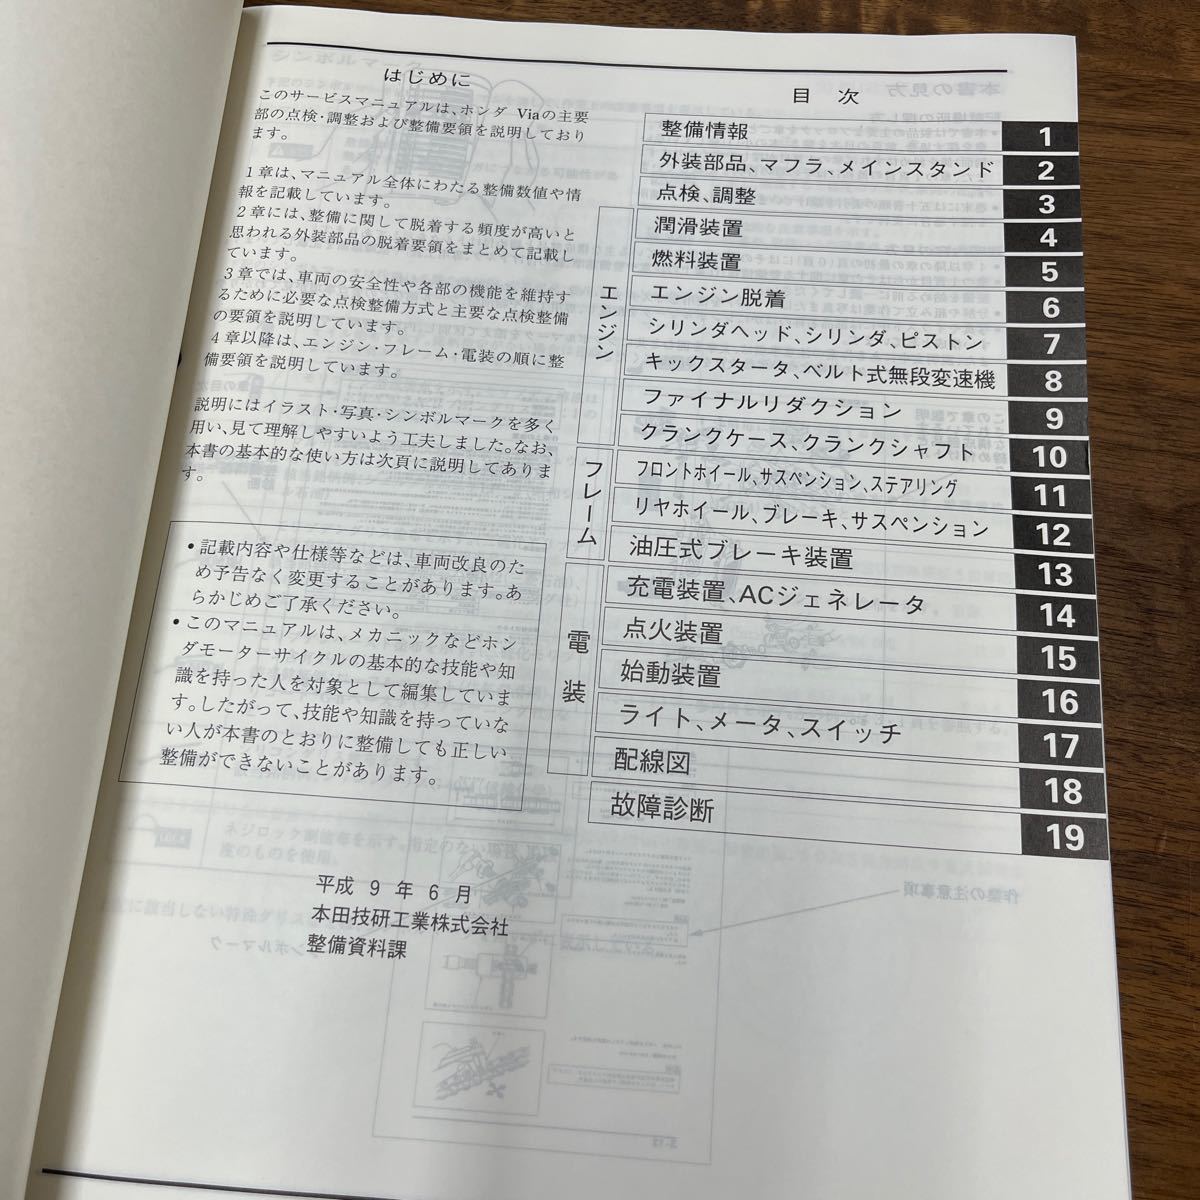 はじめに
このサービスマニュアルは、ホンダ Viaの主要
部の点検・調整および整備要領を説明しており
ます。
1章は、マニュアル全体にわたる整備数値や情
報を記載しています。
2章には、整備に関して脱着する頻度が高いと
思われる外装部品の脱着要領をまとめて記載し
ています。
3章では、車両の安全性や各部の機能を維持す
るために必要な点検整備方式と主要な点検整備
の要領を説明しています。
4章以降は、エンジン・フレーム・電装の順に整
備要領を説明しています。
説明にはイラスト・写真・シンボルマークを多く
用い、見て理解しやすいよう工夫しました。なお、
本書の基本的な使い方は次頁に説明してありま
す。
•記載内容や仕様等などは、車両改良のた
め予告なく変更することがあります。あ
らかじめご了承ください。
•このマニュアルは、メカニックなどホン
ダモーターサイクルの基本的な技能や知
識を持った人を対象として編集していま
す。したがって、技能や知識を持っていな
い人が本書のとおりに整備しても正しい
整備ができないことがあります。
平成 9 年 6 月
本田技研工業株式会社
整備資料課
目 次
整備情報 1
外装部品、マフラ、メインスタンド 2
点検、調整 3
エンジン
潤滑装置 4
燃料装置 5
エンジン脱着 6
シリンダヘッド、シリンダ、ピストン 7
キックスタータ、ベルト式無段変速機 8
ファイナルリダクション 9
クランクケース、クランクシャフト 10
フレーム
フロントホイール、サスペンション、ステアリング 11
リヤホイール、ブレーキ、サスペンション 12
油圧式ブレーキ装置 13
電装
充電装置、ACジェネレータ 14
点火装置 15
始動装置 16
ライト、メータ、スイッチ 17
配線図 18
故障診断 19